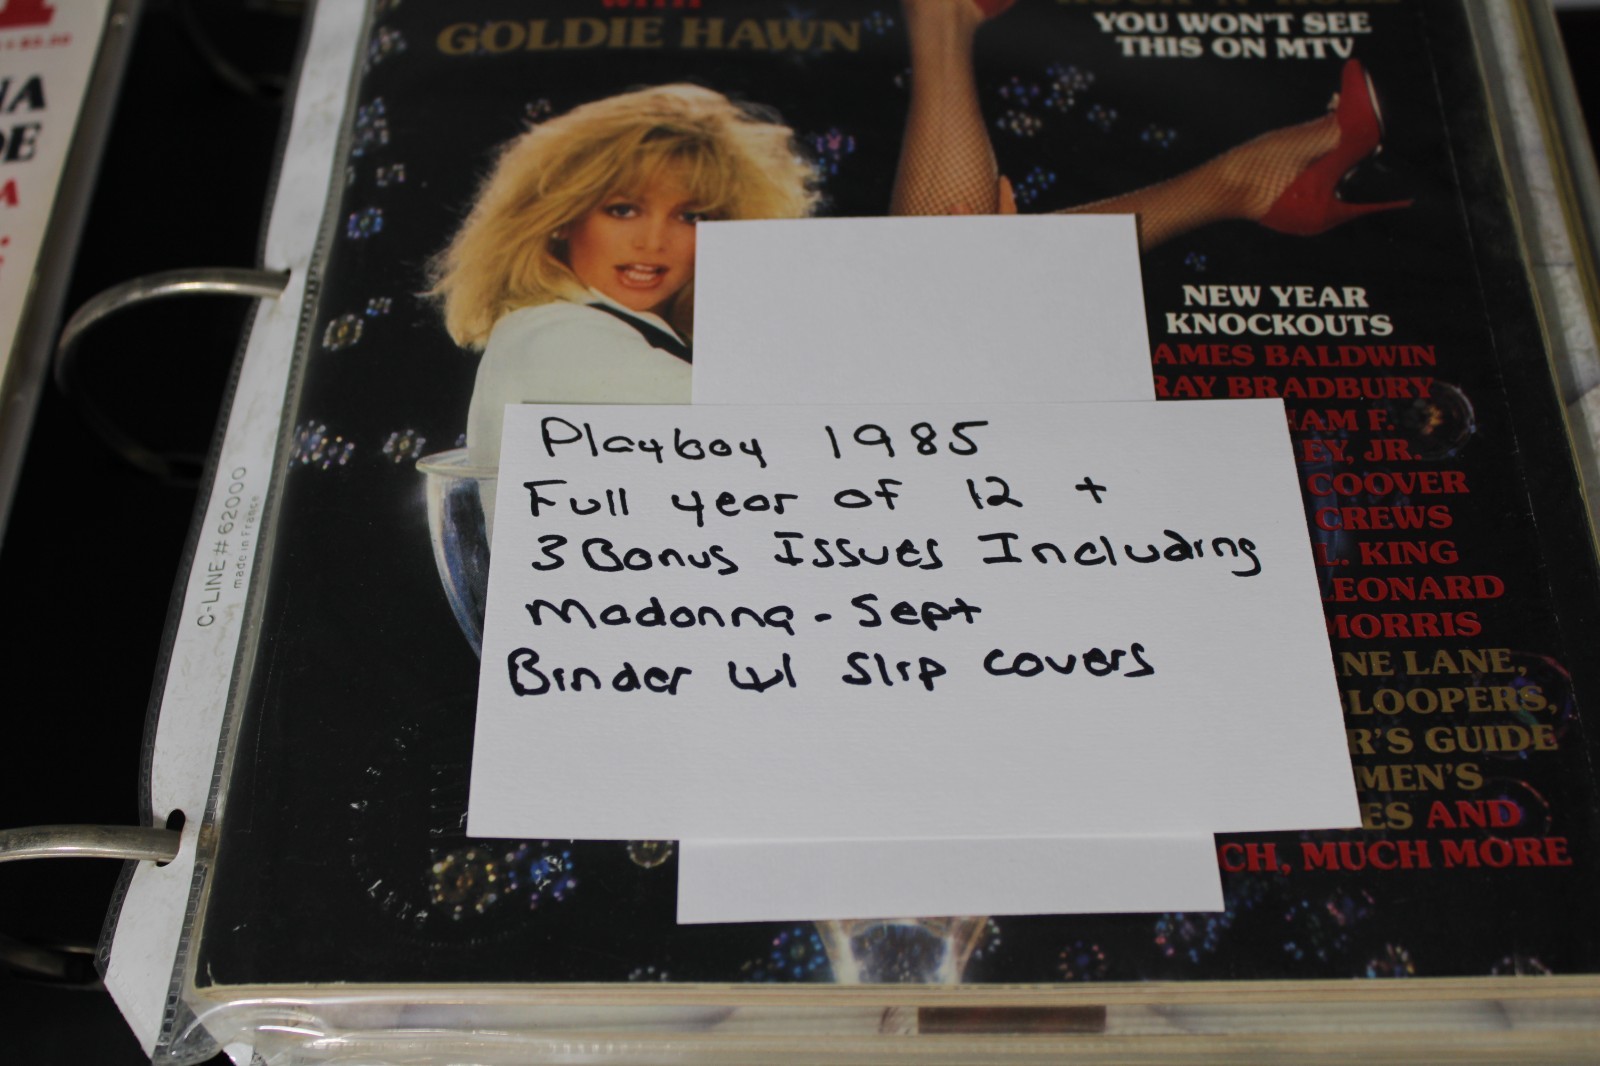 $5.50
NA
DE
WITH
GOLDIE HAWN
ROCK 'N' ROLL
YOU WON'T SEE
THIS ON MTV
NEW YEAR
KNOCKOUTS
AMES BALDWIN
RAY BRADBURY
HAM F.
EY, JR.
COOVER
CREWS
L. KING
LEONARD
MORRIS
NE LANE,
BLOOPERS,
R'S GUIDE
MEN'S
ES AND
CH, MUCH MORE
Playboy 1985
Full year of 12 +
3 Bonus Issues Including
Madonna - Sept
Binder w/ slip covers
C-LINE # 62000
made in France